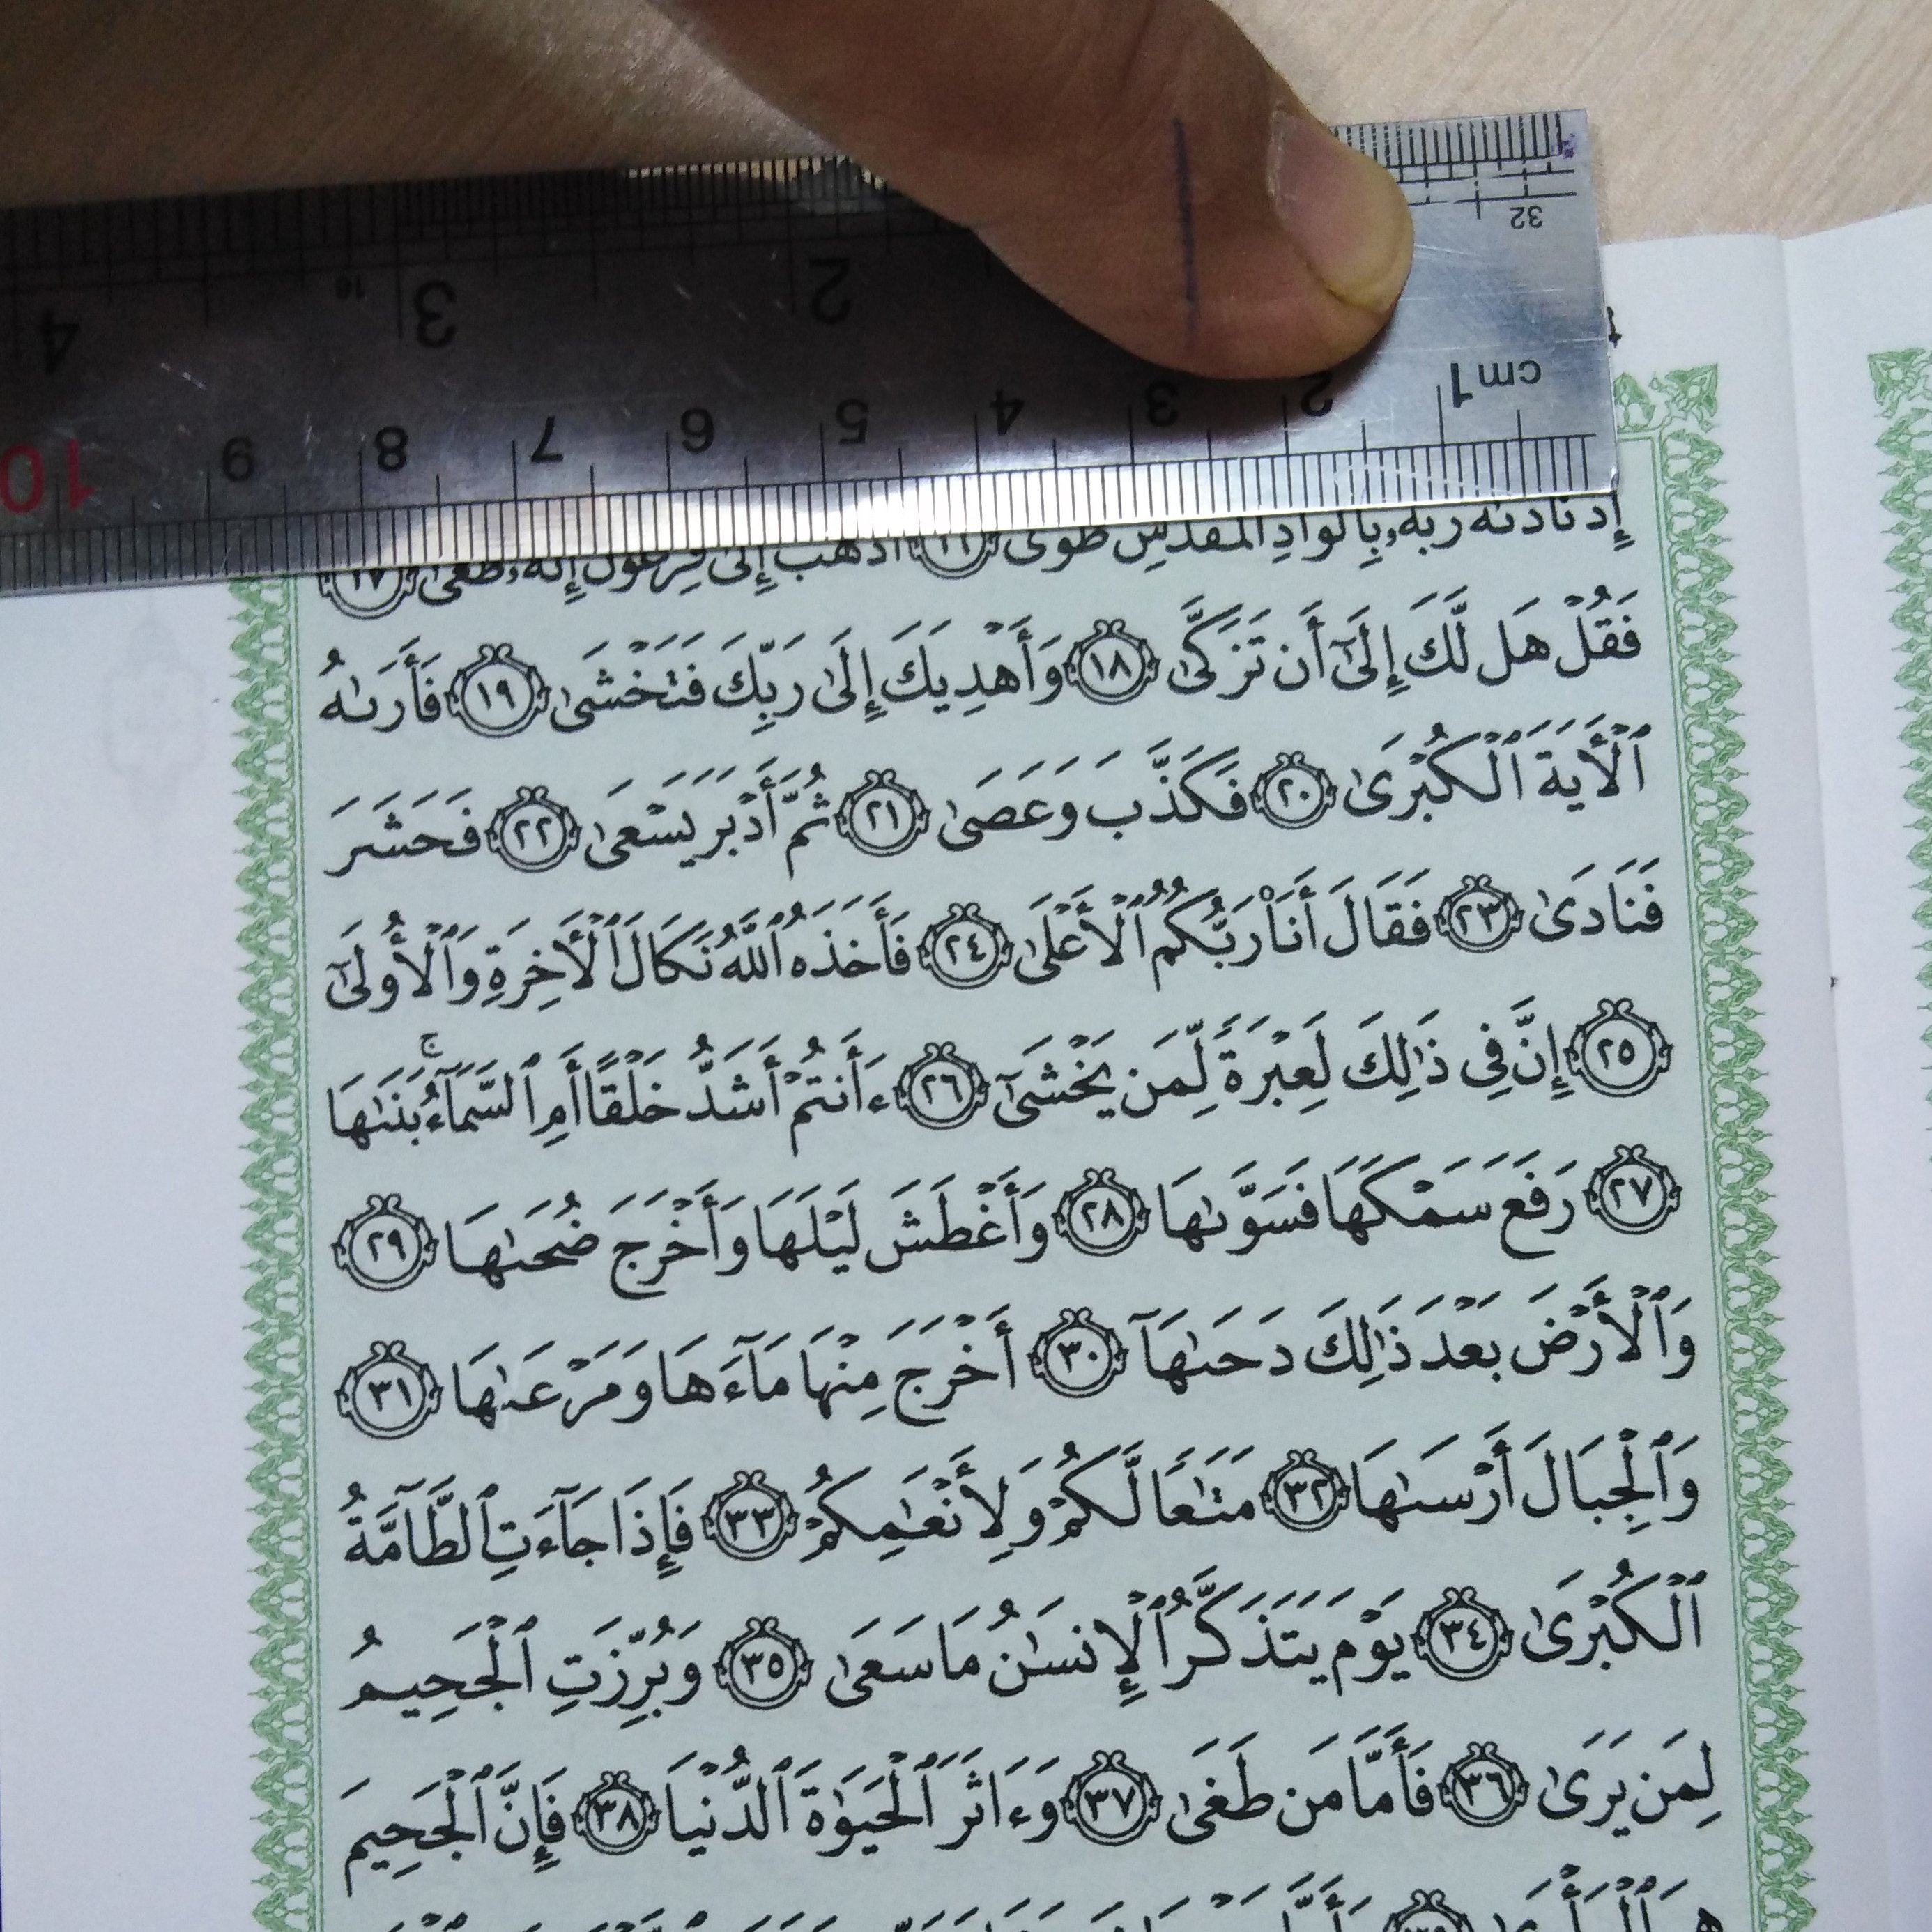 32
4 3 2
cm 1 2 3 4 5 6 7 8 9 10
إِذْ نَادَىٰهُ رَبُّهُۥ بِٱلْوَادِ ٱلْمُقَدَّسِ طُوًى ١٦ ٱذْهَبْ إِلَىٰ فِرْعَوْنَ إِنَّهُۥ طَغَىٰ ١٧
فَقُلْ هَل لَّكَ إِلَىٰٓ أَن تَزَكَّىٰ ١٨ وَأَهْدِيَكَ إِلَىٰ رَبِّكَ فَتَخْشَىٰ ١٩ فَأَرَىٰهُ
ٱلْأَيَةَ ٱلْكُبْرَىٰ ٢٠ فَكَذَّبَ وَعَصَىٰ ٢١ ثُمَّ أَدْبَرَ يَسْعَىٰ ٢٢ فَحَشَرَ
فَنَادَىٰ ٢٣ فَقَالَ أَنَا۠ رَبُّكُمُ ٱلْأَعْلَىٰ ٢٤ فَأَخَذَهُ ٱللَّهُ نَكَالَ ٱلْأَخِرَةِ وَٱلْأُولَىٰٓ
٢٥ إِنَّ فِى ذَٰلِكَ لَعِبْرَةً لِّمَن يَخْشَىٰٓ ٢٦ ءَأَنتُمْ أَشَدُّ خَلْقًا أَمِ ٱلسَّمَآءُ ۚ بَنَىٰهَا
٢٧ رَفَعَ سَمْكَهَا فَسَوَّىٰهَا ٢٨ وَأَغْطَشَ لَيْلَهَا وَأَخْرَجَ ضُحَىٰهَا ٢٩
وَٱلْأَرْضَ بَعْدَ ذَٰلِكَ دَحَىٰهَآ ٣٠ أَخْرَجَ مِنْهَا مَآءَهَا وَمَرْعَىٰهَا ٣١
وَٱلْجِبَالَ أَرْسَىٰهَا ٣٢ مَتَٰعًا لَّكُمْ وَلِأَنْعَٰمِكُمْ ٣٣ فَإِذَا جَآءَتِ ٱلطَّآمَّةُ
ٱلْكُبْرَىٰ ٣٤ يَوْمَ يَتَذَكَّرُ ٱلْإِنسَٰنُ مَا سَعَىٰ ٣٥ وَبُرِّزَتِ ٱلْجَحِيمُ
لِمَن يَرَىٰ ٣٦ فَأَمَّا مَن طَغَىٰ ٣٧ وَءَاثَرَ ٱلْحَيَوٰةَ ٱلدُّنْيَا ٣٨ فَإِنَّ ٱلْجَحِيمَ
هِىَ ٱلْمَأْوَىٰ ٣٩